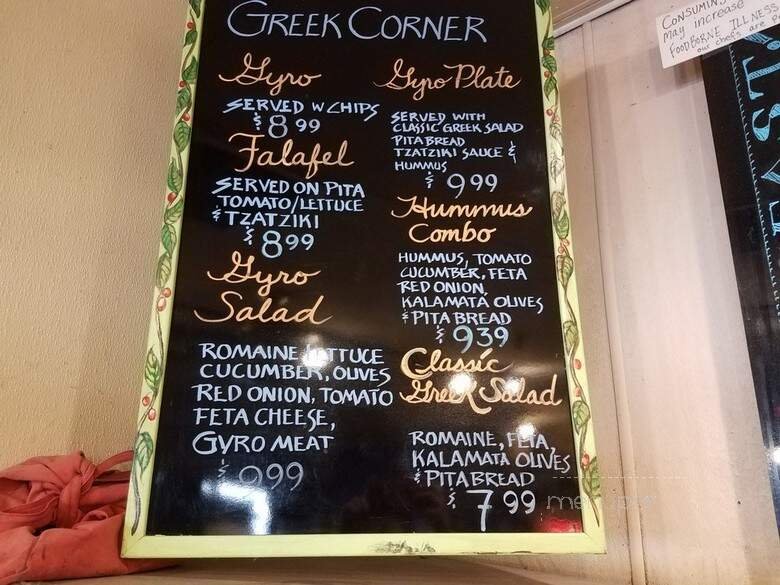 GREEK CORNER
Gyro
SERVED W CHIPS
$8 99
Falafel
SERVED ON PITA
TOMATO/LETTUCE
& TZATZIKI
$8 99
Gyro
Salad
ROMAINE LETTUCE
CUCUMBER, OLIVES
RED ONION, TOMATO
FETA CHEESE,
GYRO MEAT
$9 99
Gyro Plate
SERVED WITH
CLASSIC GREEK SALAD
PITA BREAD
TZATZIKI SAUCE &
HUMMUS
$9 99
Hummus
Combo
HUMMUS, TOMATO
CUCUMBER, FETA
RED ONION,
KALAMATA OLIVES
& PITA BREAD
$9 39
Classic
Greek Salad
ROMAINE, FETA,
KALAMATA OLIVES
& PITA BREAD
$7 99
CONSUMING
may increase
FOODBORNE ILLNESS
our chefs are